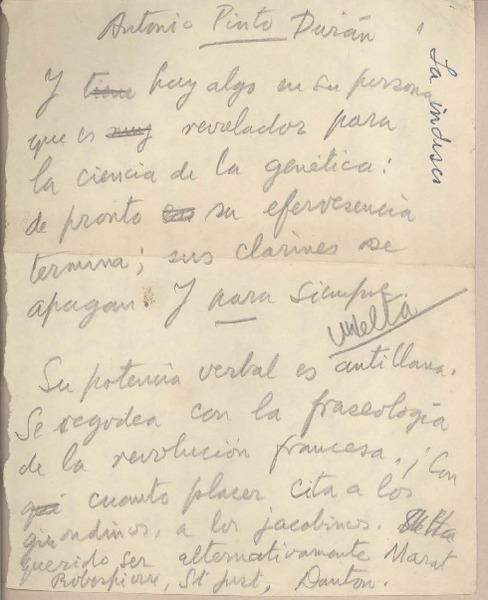 Antonio Pinto Durán
"La indisci
Y tiene hay algo en su persona
que es muy revelador para
la ciencia de la genética:
de pronto su efervesencia
termina; sus clarines se
apagan. Y para siempre.
vuelta
Su potencia verbal es antillana.
Se regodea con la fraseología
de la revolución francesa. ¡Con
cuanto placer cita a los
girondinos, a los jacobinos.
querido ser alternativamente Marat
Robespierre, St Just, Danton.